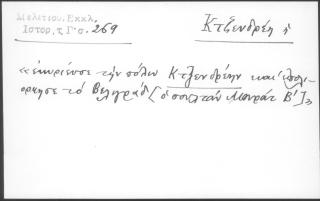 Μελετίου. Εκκλ.
Ιστορ. τ. Γ' σ. 269
Κτζενδρέη ἡ
«ἐκυρίευσε τὴν πόλιν Κτζενδρέην καὶ ἐπολι-
όρκησε τὸ Βελιγράδ [ὁ σουλτὰν Μουρὰτ Β']»